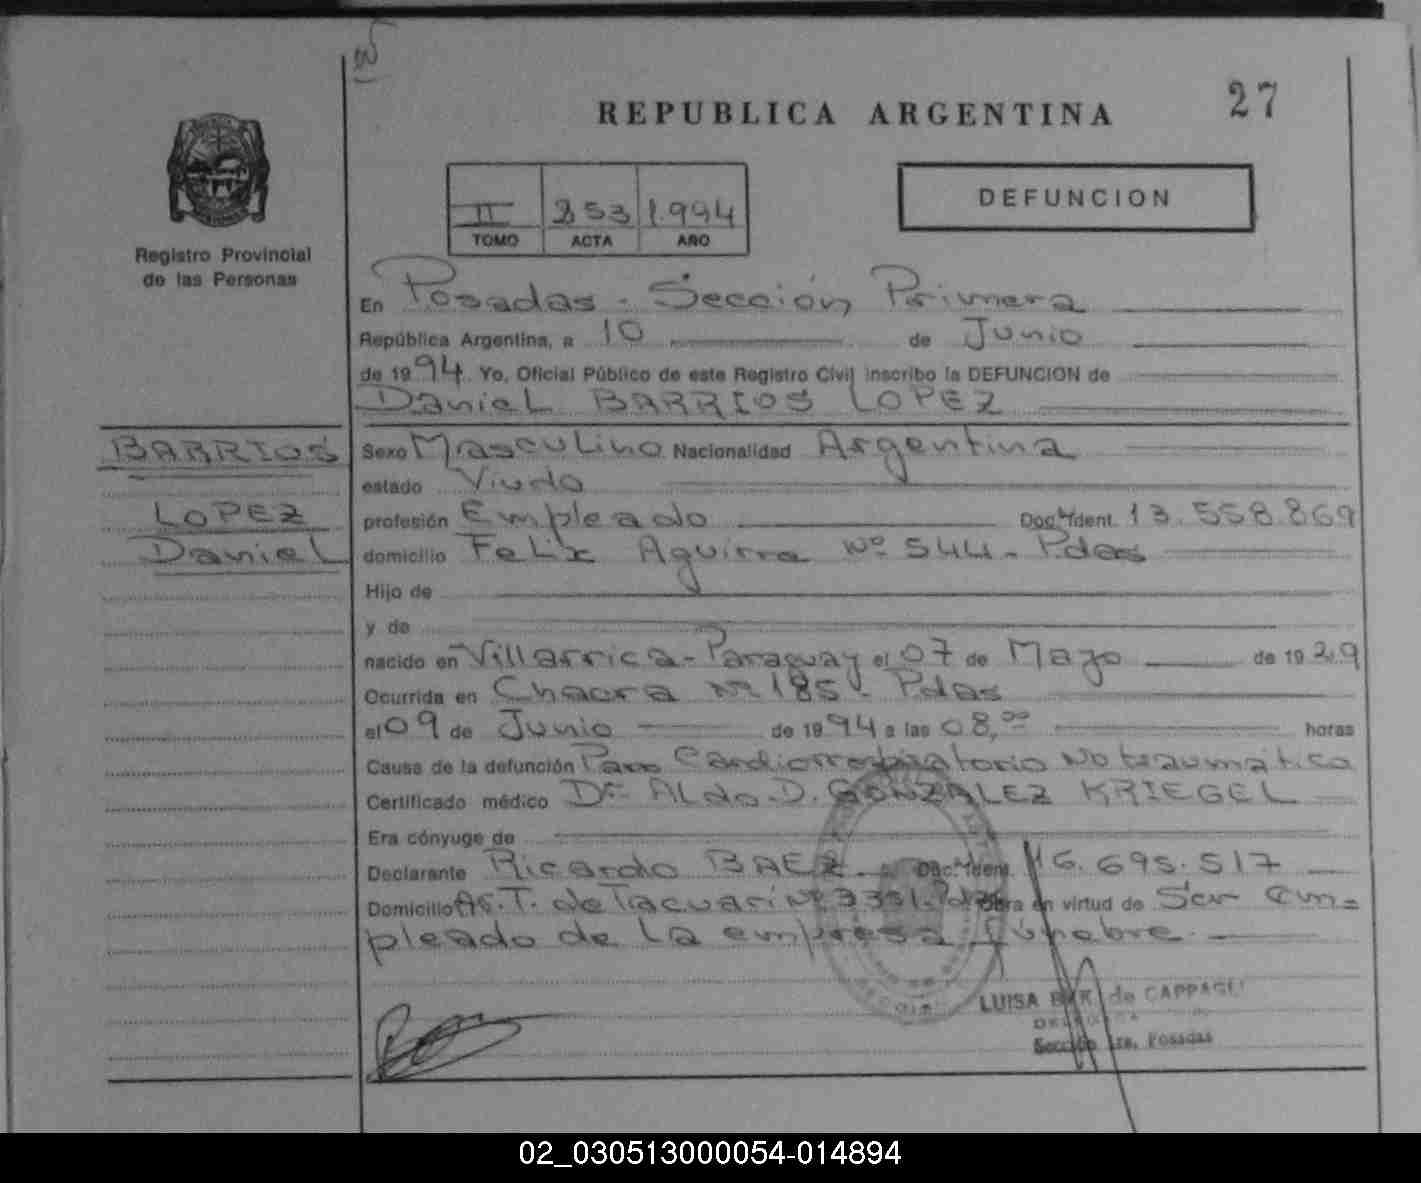 27
REPUBLICA ARGENTINA
DEFUNCION
II 253 1.994
TOMO ACTA AÑO
Registro Provincial
de las Personas
En Posadas - Sección Primera
República Argentina, a 10 de Junio
de 1994. Yo, Oficial Público de este Registro Civil inscribo la DEFUNCION de
Daniel BARRIOS LOPEZ
BARRIOS
LOPEZ
Daniel
Sexo Masculino Nacionalidad Argentina
estado Viudo
profesión Empleado Doc. Ident. 13.558.869
domicilio Felix Aguirre Nº 544 - Pdas
Hijo de
y de
nacido en Villarrica - Paraguay el 07 de Mayo de 1929
Ocurrida en Chacra Nº 185 - Pdas
el 09 de Junio de 1994 a las 08,00 horas
Causa de la defunción Paro Cardiorrespiratorio No traumatico
Certificado médico Dr. Aldo. D. GONZALEZ KRIEGEL
Era cónyuge de
Declarante Ricardo BAEZ. Doc. Ident. 16.695.517
Domicilio Av. T. de Tacuari Nº 3351. Pdas Obra en virtud de Ser em=
pleado de la empresa fúnebre.
LUISA de CAPPAGLI
DELEGADA
Sección 1ra. Posadas
02_030513000054-014894